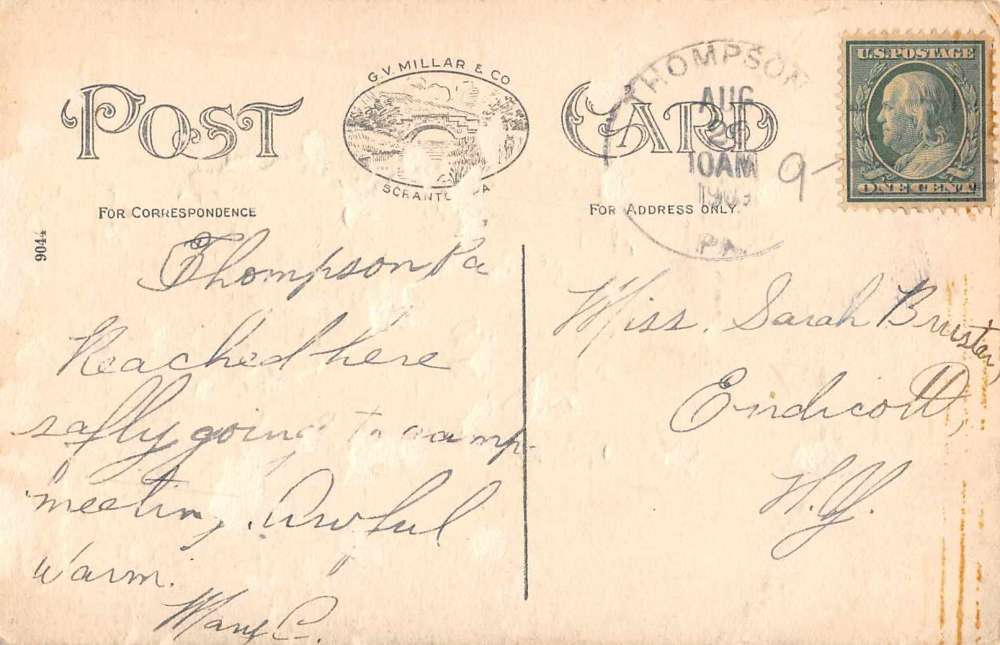 POST CARD
G.V. MILLAR & CO
SCRANTON PA
THOMPSON
AUG
10 AM
PA.
9
U.S. POSTAGE
ONE CENT
FOR CORRESPONDENCE
FOR ADDRESS ONLY.
9044
Thompson Pa
Reached here
saftly going to camp
meeting. Awful
warm.
Mary C.
Miss. Sarah Bruster,
Endicott,
N.Y.